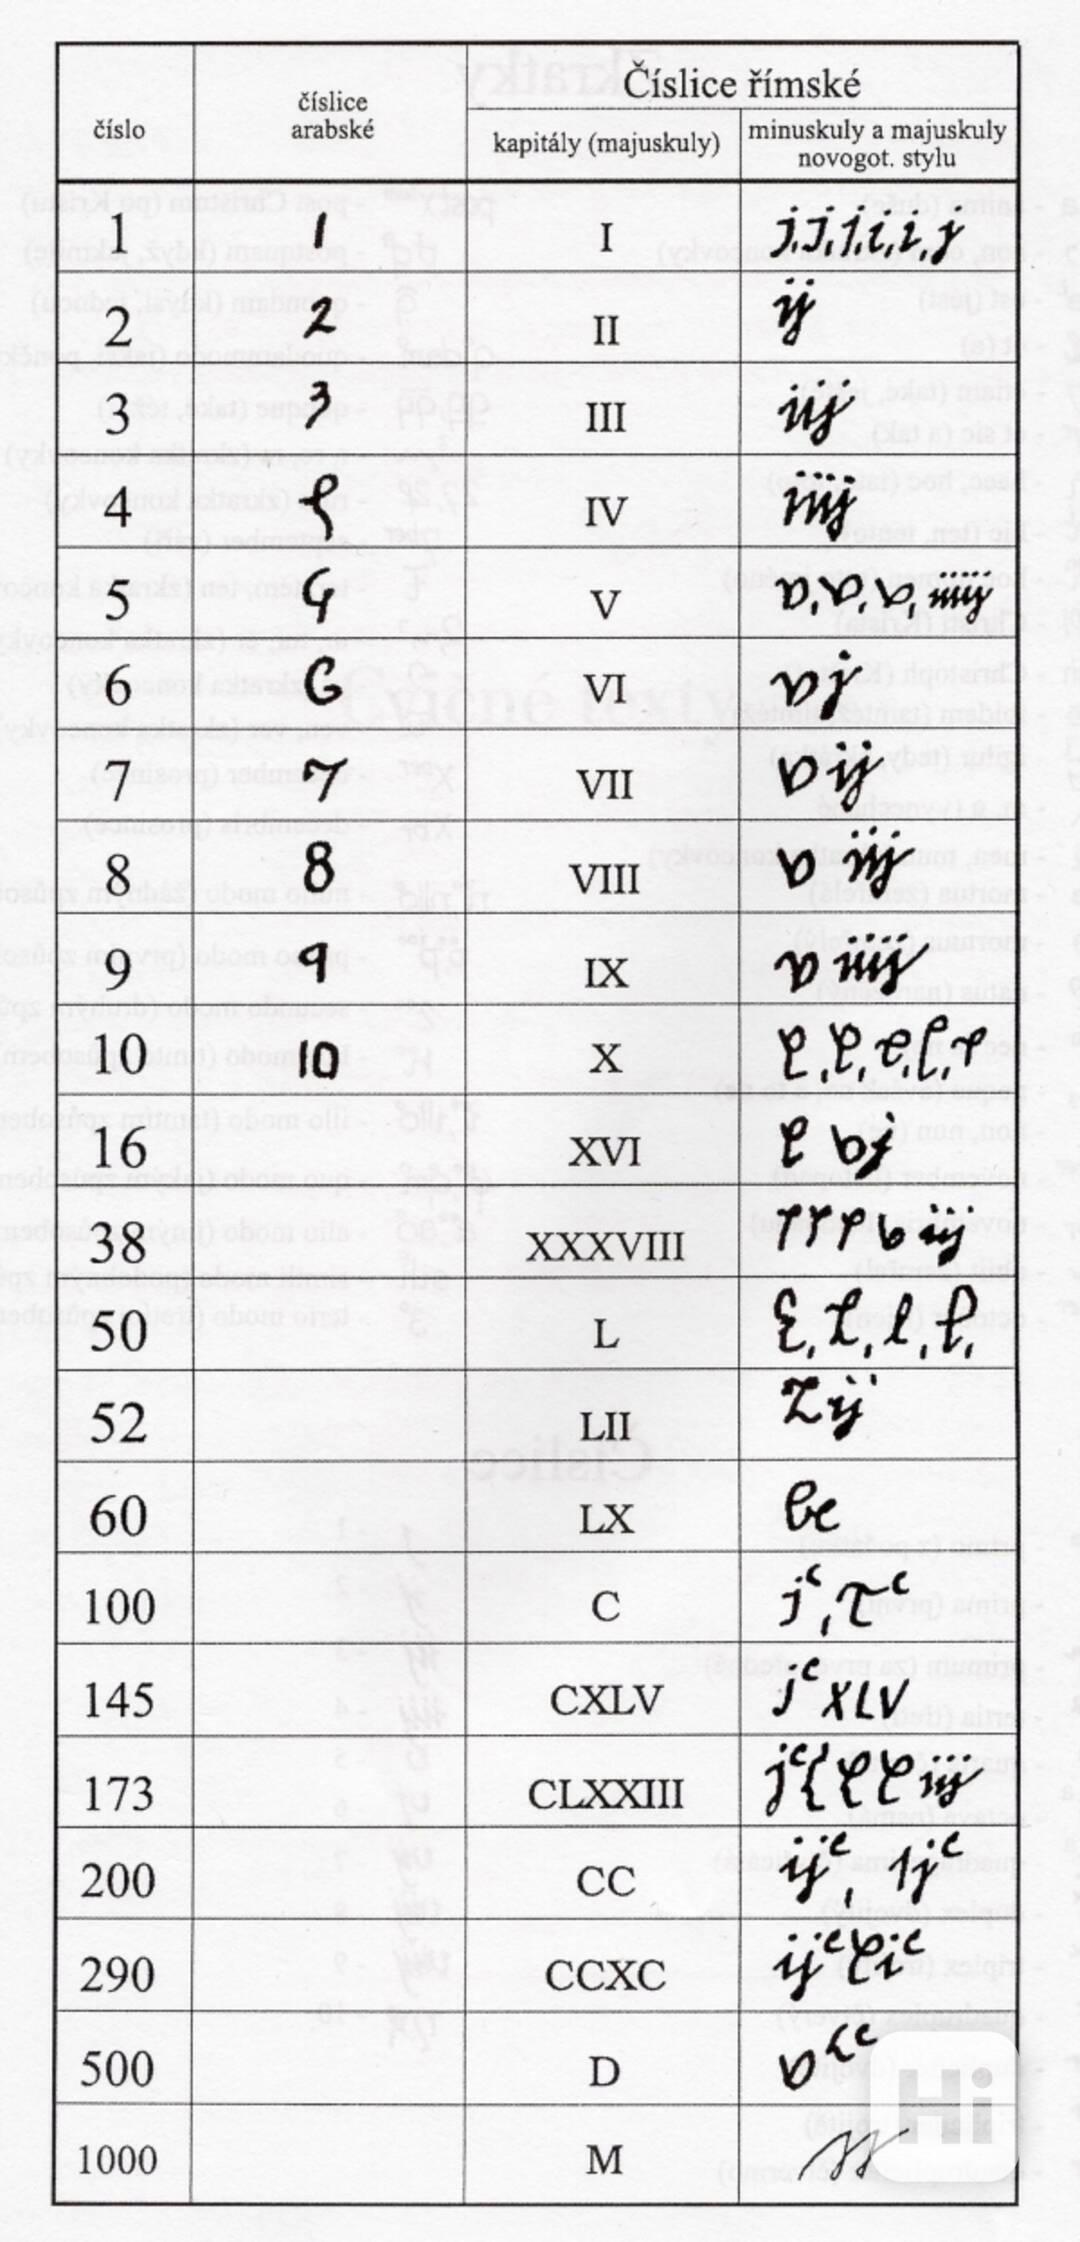 Číslice římské
číslo číslice arabské kapitály (majuskuly) minuskuly a majuskuly novogot. stylu
1 1 I j, J, 1, i, i, j
2 2 II ij
3 3 III iij
4 4 IV iiij
5 5 V v, v, v, iiiij
6 6 VI vj
7 7 VII vij
8 8 VIII v iij
9 9 IX v iiij
10 10 X
16 XVI
38 XXXVIII
50 L
52 LII
60 LX
100 C jc
145 CXLV jc XLV
173 CLXXIII
200 CC ijc, ijc
290 CCXC
500 D
1000 M
Hi